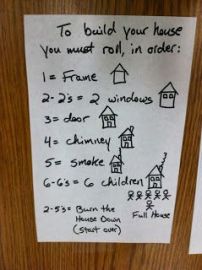 To build your house
you must roll, in order:
1 = Frame
2-2's = 2 windows
3 = door
4 = chimney
5 = smoke
6-6's = 6 children
2-5's = Burn the
House Down
(start over)
Full House